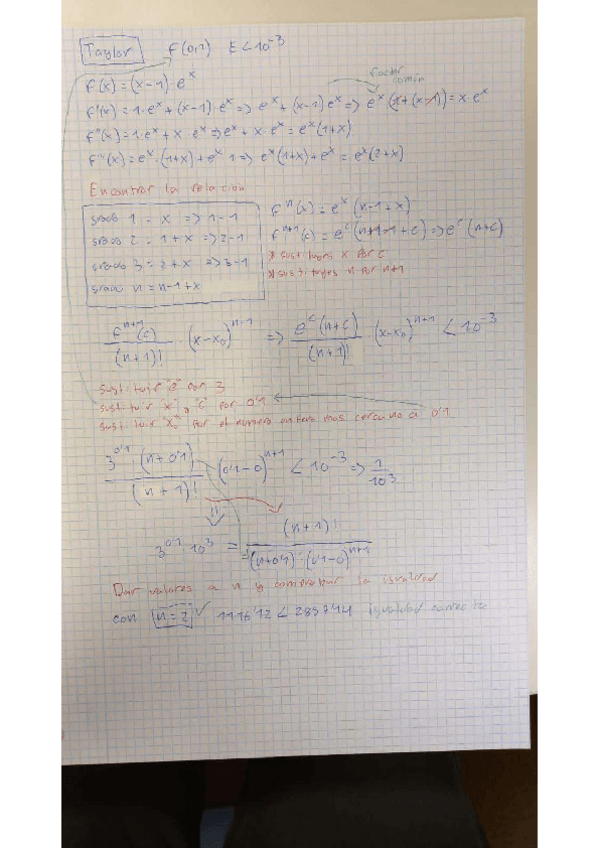 Taylor f(0,1) E<10^-3
f(x) = (x-1)·e^x
factor común
f'(x) = 1·e^x + (x-1)·e^x => e^x + (x-1)e^x => e^x(1+(x-1)) = x·e^x
f''(x) = 1·e^x + x·e^x => e^x + x·e^x = e^x(1+x)
f'''(x) = e^x·(1+x) + e^x·1 => e^x(1+x) + e^x = e^x(2+x)
Encontrar la relación
grado 1 = x => 1-1
grado 2 = 1+x => 2-1
grado 3 = 2+x => 3-1
grado n = n-1+x
f^n(x) = e^x(n-1+x)
f^n+1(c) = e^c(n+1-1+c) => e^c(n+c)
* sustituyes x por c
* sustituyes n por n+1
f^n+1(c)/(n+1)! · (x-x₀)^n-1 => e^c(n+c)/(n+1)! (x-x₀)^n+1 < 10^-3
sustituir "e" por 3
sustituir "x" y "c" por 0'1
sustituir "x₀" por el número entero mas cercano a 0'1
3^0'1·(n+0'1)/(n+1)! · (0'1-0)^n+1 < 10^-3 => 1/10^3
3^0'1·10^3 = (n+1)!/(n+0'1)·(0'1-0)^n+1
Dar valores a n y comprobar la igualdad
con n=2 ✓ 1116'12 < 2857'14 igualdad correcta